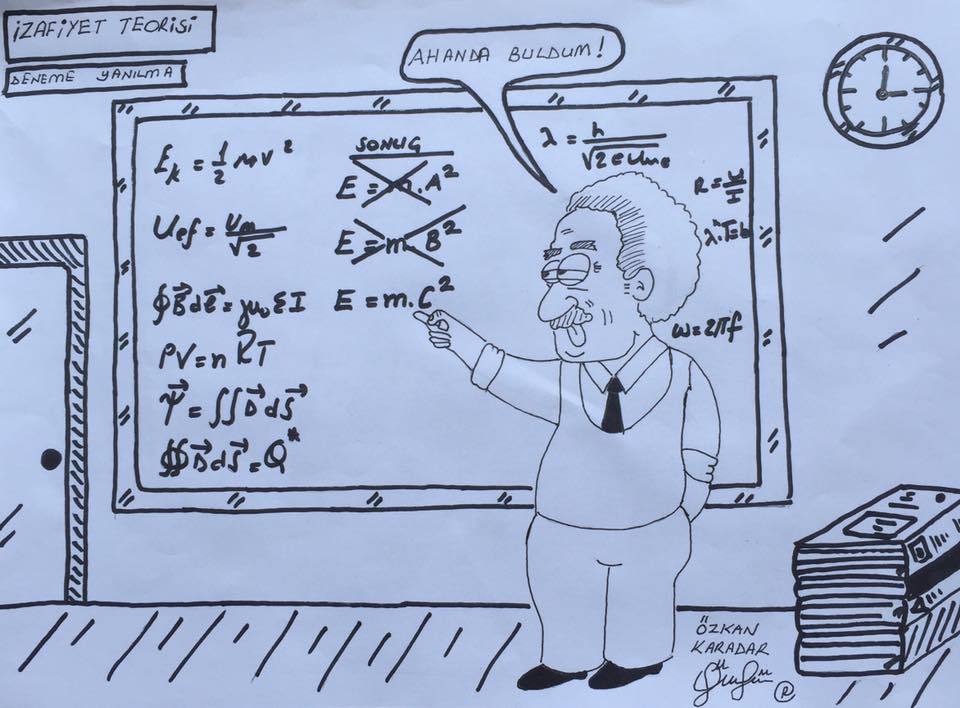 İZAFİYET TEORİSİ
DENEME YANILMA
AHANDA BULDUM!
Eₖ = 1/2 mv²
Uef = Um/√2
∮B⃗dℓ⃗ = μ₀ΣI
PV = nRT
Ψ⃗ = ∬D⃗dS⃗
∯D⃗dS⃗ = Q*
SONUÇ
E = m.A²
E = m.B²
E = m.C²
λ = h/√2eUmₑ
R = U/I
λ.T=b
ω=2πf
ÖZKAN
KARADAR
®